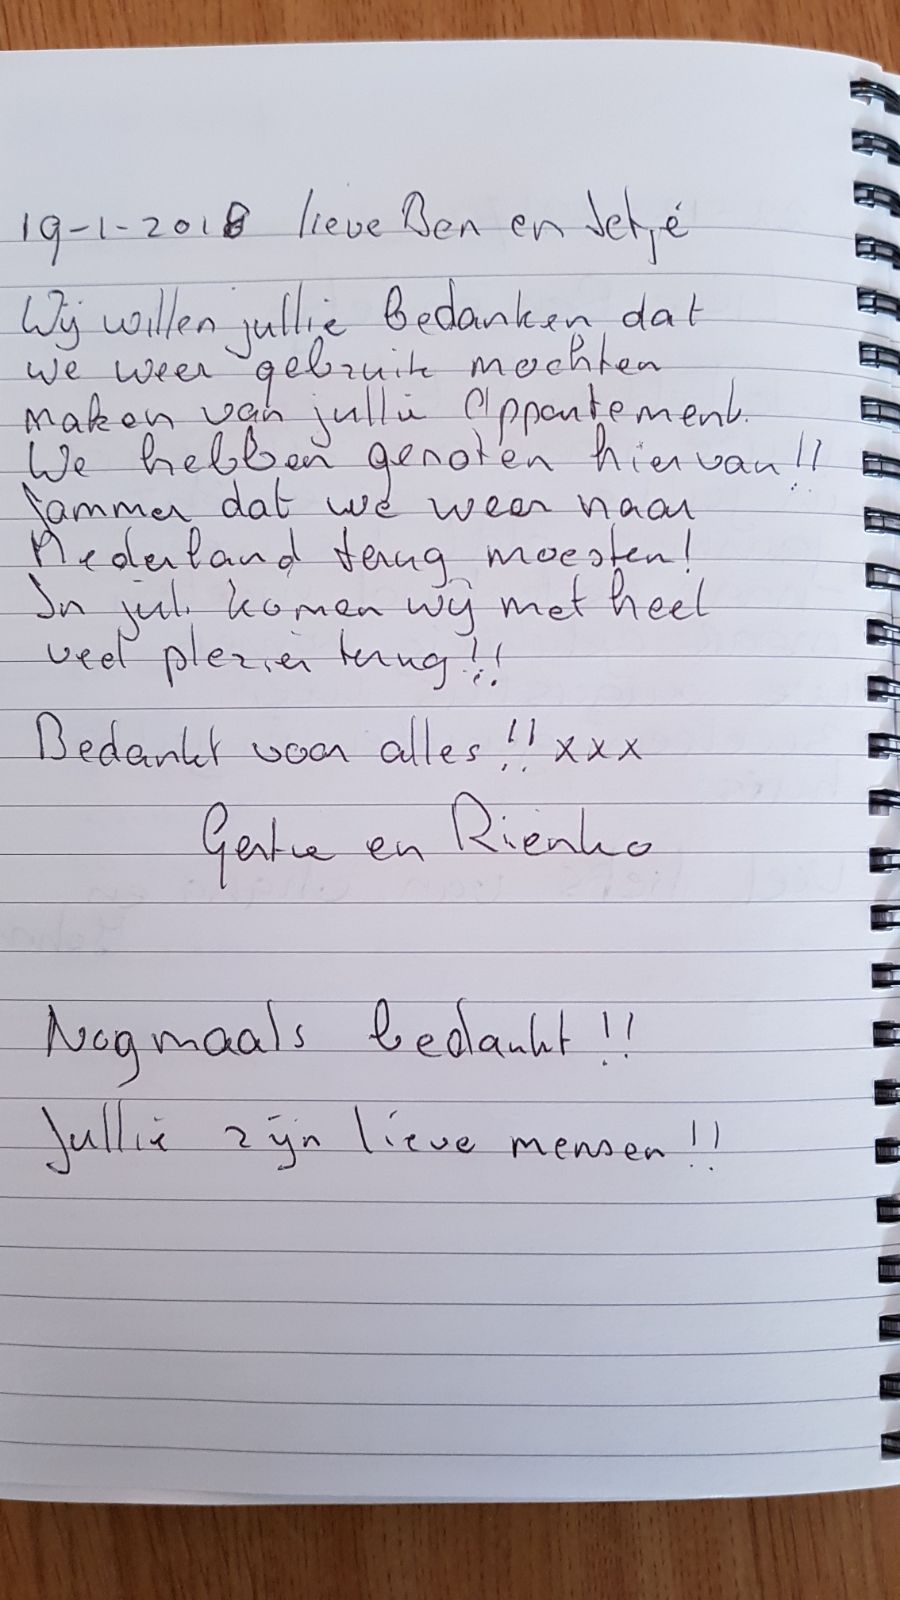 19-1-2018 lieve Ben en Jetjé
Wij willen jullie bedanken dat
we weer gebruik mochten
maken van jullie Appartement.
We hebben genoten hiervan!!
Jammer dat we weer naar
Nederland terug moesten!
In juli komen wij met heel
veel plezier terug!!
Bedankt voor alles!! xxx
Gertie en Rienko
Nogmaals bedankt!!
Jullie zijn lieve mensen!!